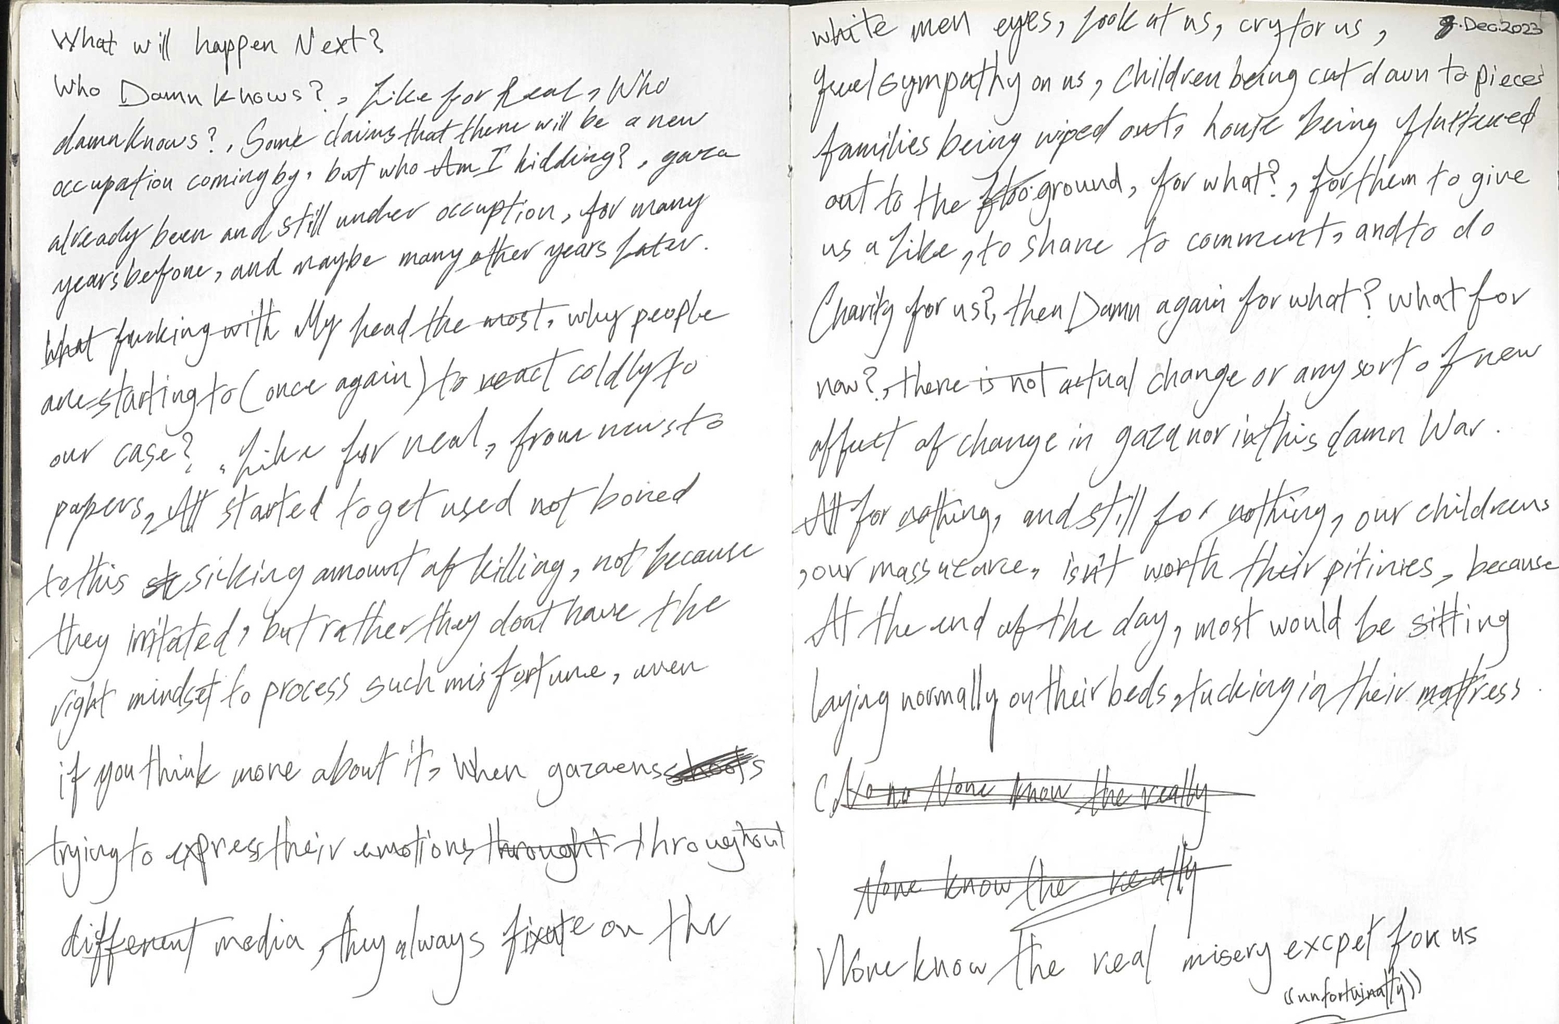 What will happen Next?
Who Damn knows?, Like for Real, Who
damn knows?, Some claims that there will be a new
occupation coming by, but who Am I kidding?, gaza
already been and still under occuption, for many
years before, and maybe many other years Later.
What fucking with My head the most, why people
are starting to (once again) to react coldly to
our case?, Like for real, from news to
papers, All started to get used not bored
to this sicking amount of killing, not because
they irritated, but rather they doat have the
right mindset to process such misfortune, even
if you think more about it, When gazaens
trying to express their emotions throught throughout
different media, they always fixate on the
8.Dec.2023
white men eyes, Look at us, cry for us,
feel sympathy on us, Children being cut down to pieces
families being wiped out, house being flattened
out to the ground, for what?, for them to give
us a Like, to share to comment, and to do
Charity for us?, then Damn again for what? what for
now?, there is not actual change or any sort of new
affect of change in gaza nor in this damn War.
All for nothing, and still for nothing, our childrens
, our massacare, isn't worth their pitinies, because
At the end of the day, most would be sitting
laying normally on their beds, tucking in their mattress.
No no None know the really
None know the really
None know the real misery excpet for us
((unfortuinatly))